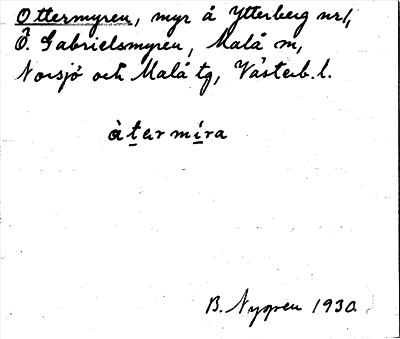 Ottermyren, myr å Ytterberg nr 1,
Ö. Gabrielsmyren, Malå m,
Norsjö och Malå tg, Västerb. l.
àtermíra
B. Nygren 1930.